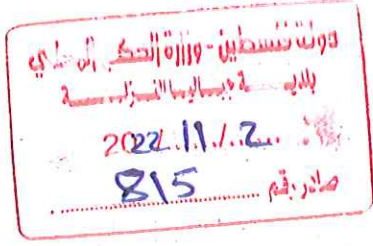 دولة فلسطين - وزارة الحكم المحلي
بلديـــة جباليـا النـزلــة
2022/11/2
صادر رقم 815